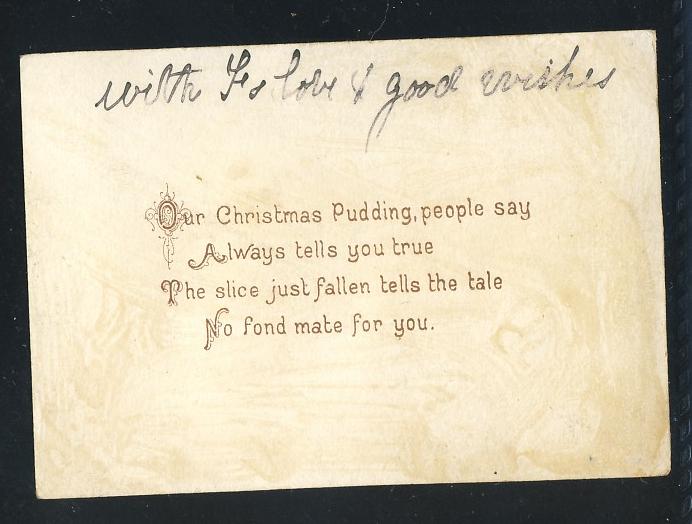 with Fs love & good wishes
Our Christmas Pudding, people say
Always tells you true
The slice just fallen tells the tale
No fond mate for you.